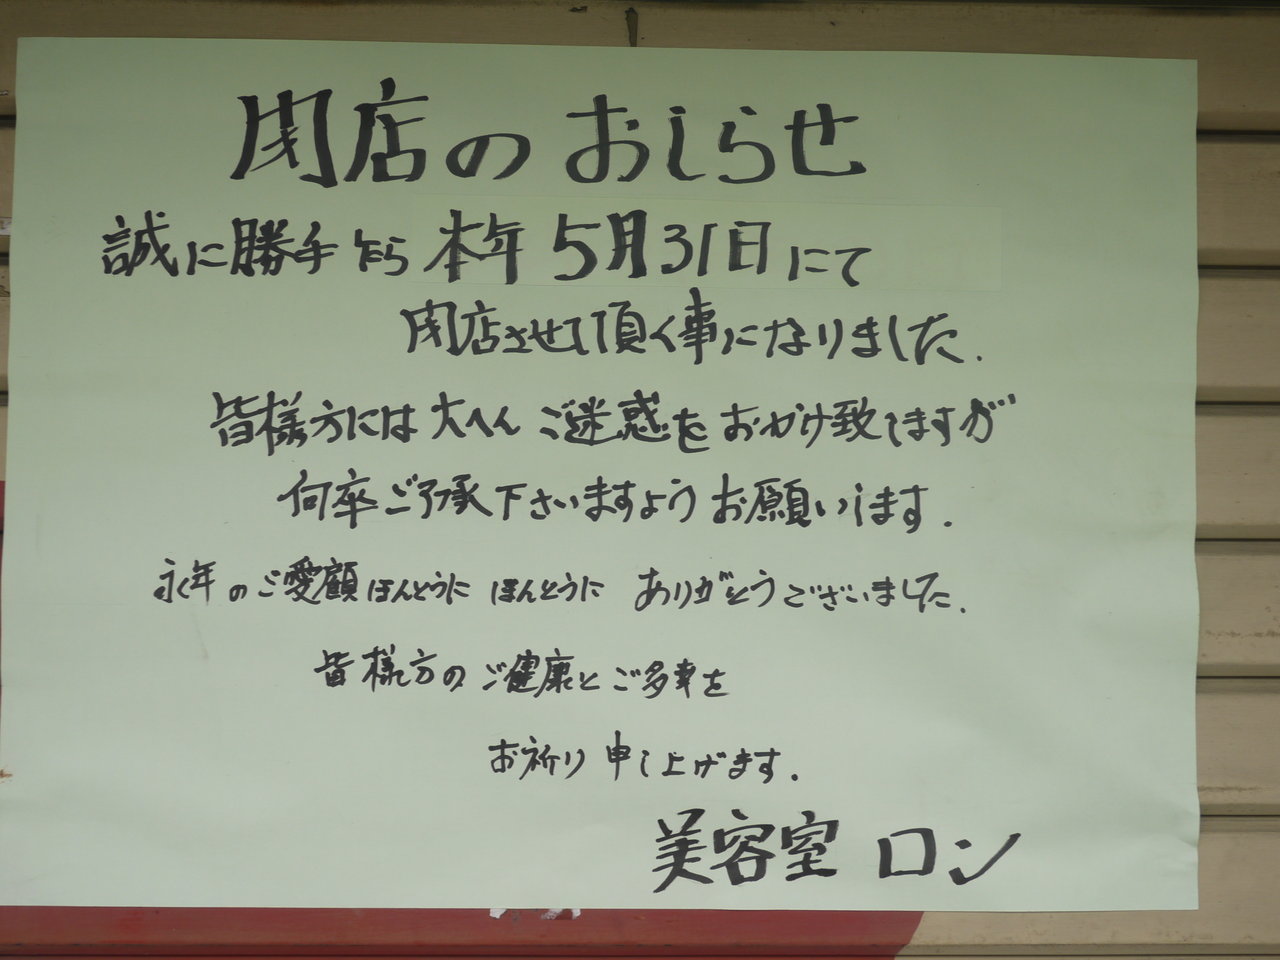 閉店のおしらせ
誠に勝手乍ら 本年 5月31日にて
閉店させて頂く事になりました.
皆様方には大へんご迷惑をおかけ致しますが
何卒ご了承下さいますようお願いします.
永年のご愛顧ほんとうに ほんとうに ありがとうございました.
皆様方のご健康とご多幸を
お祈り申し上げます.
美容室 ロン